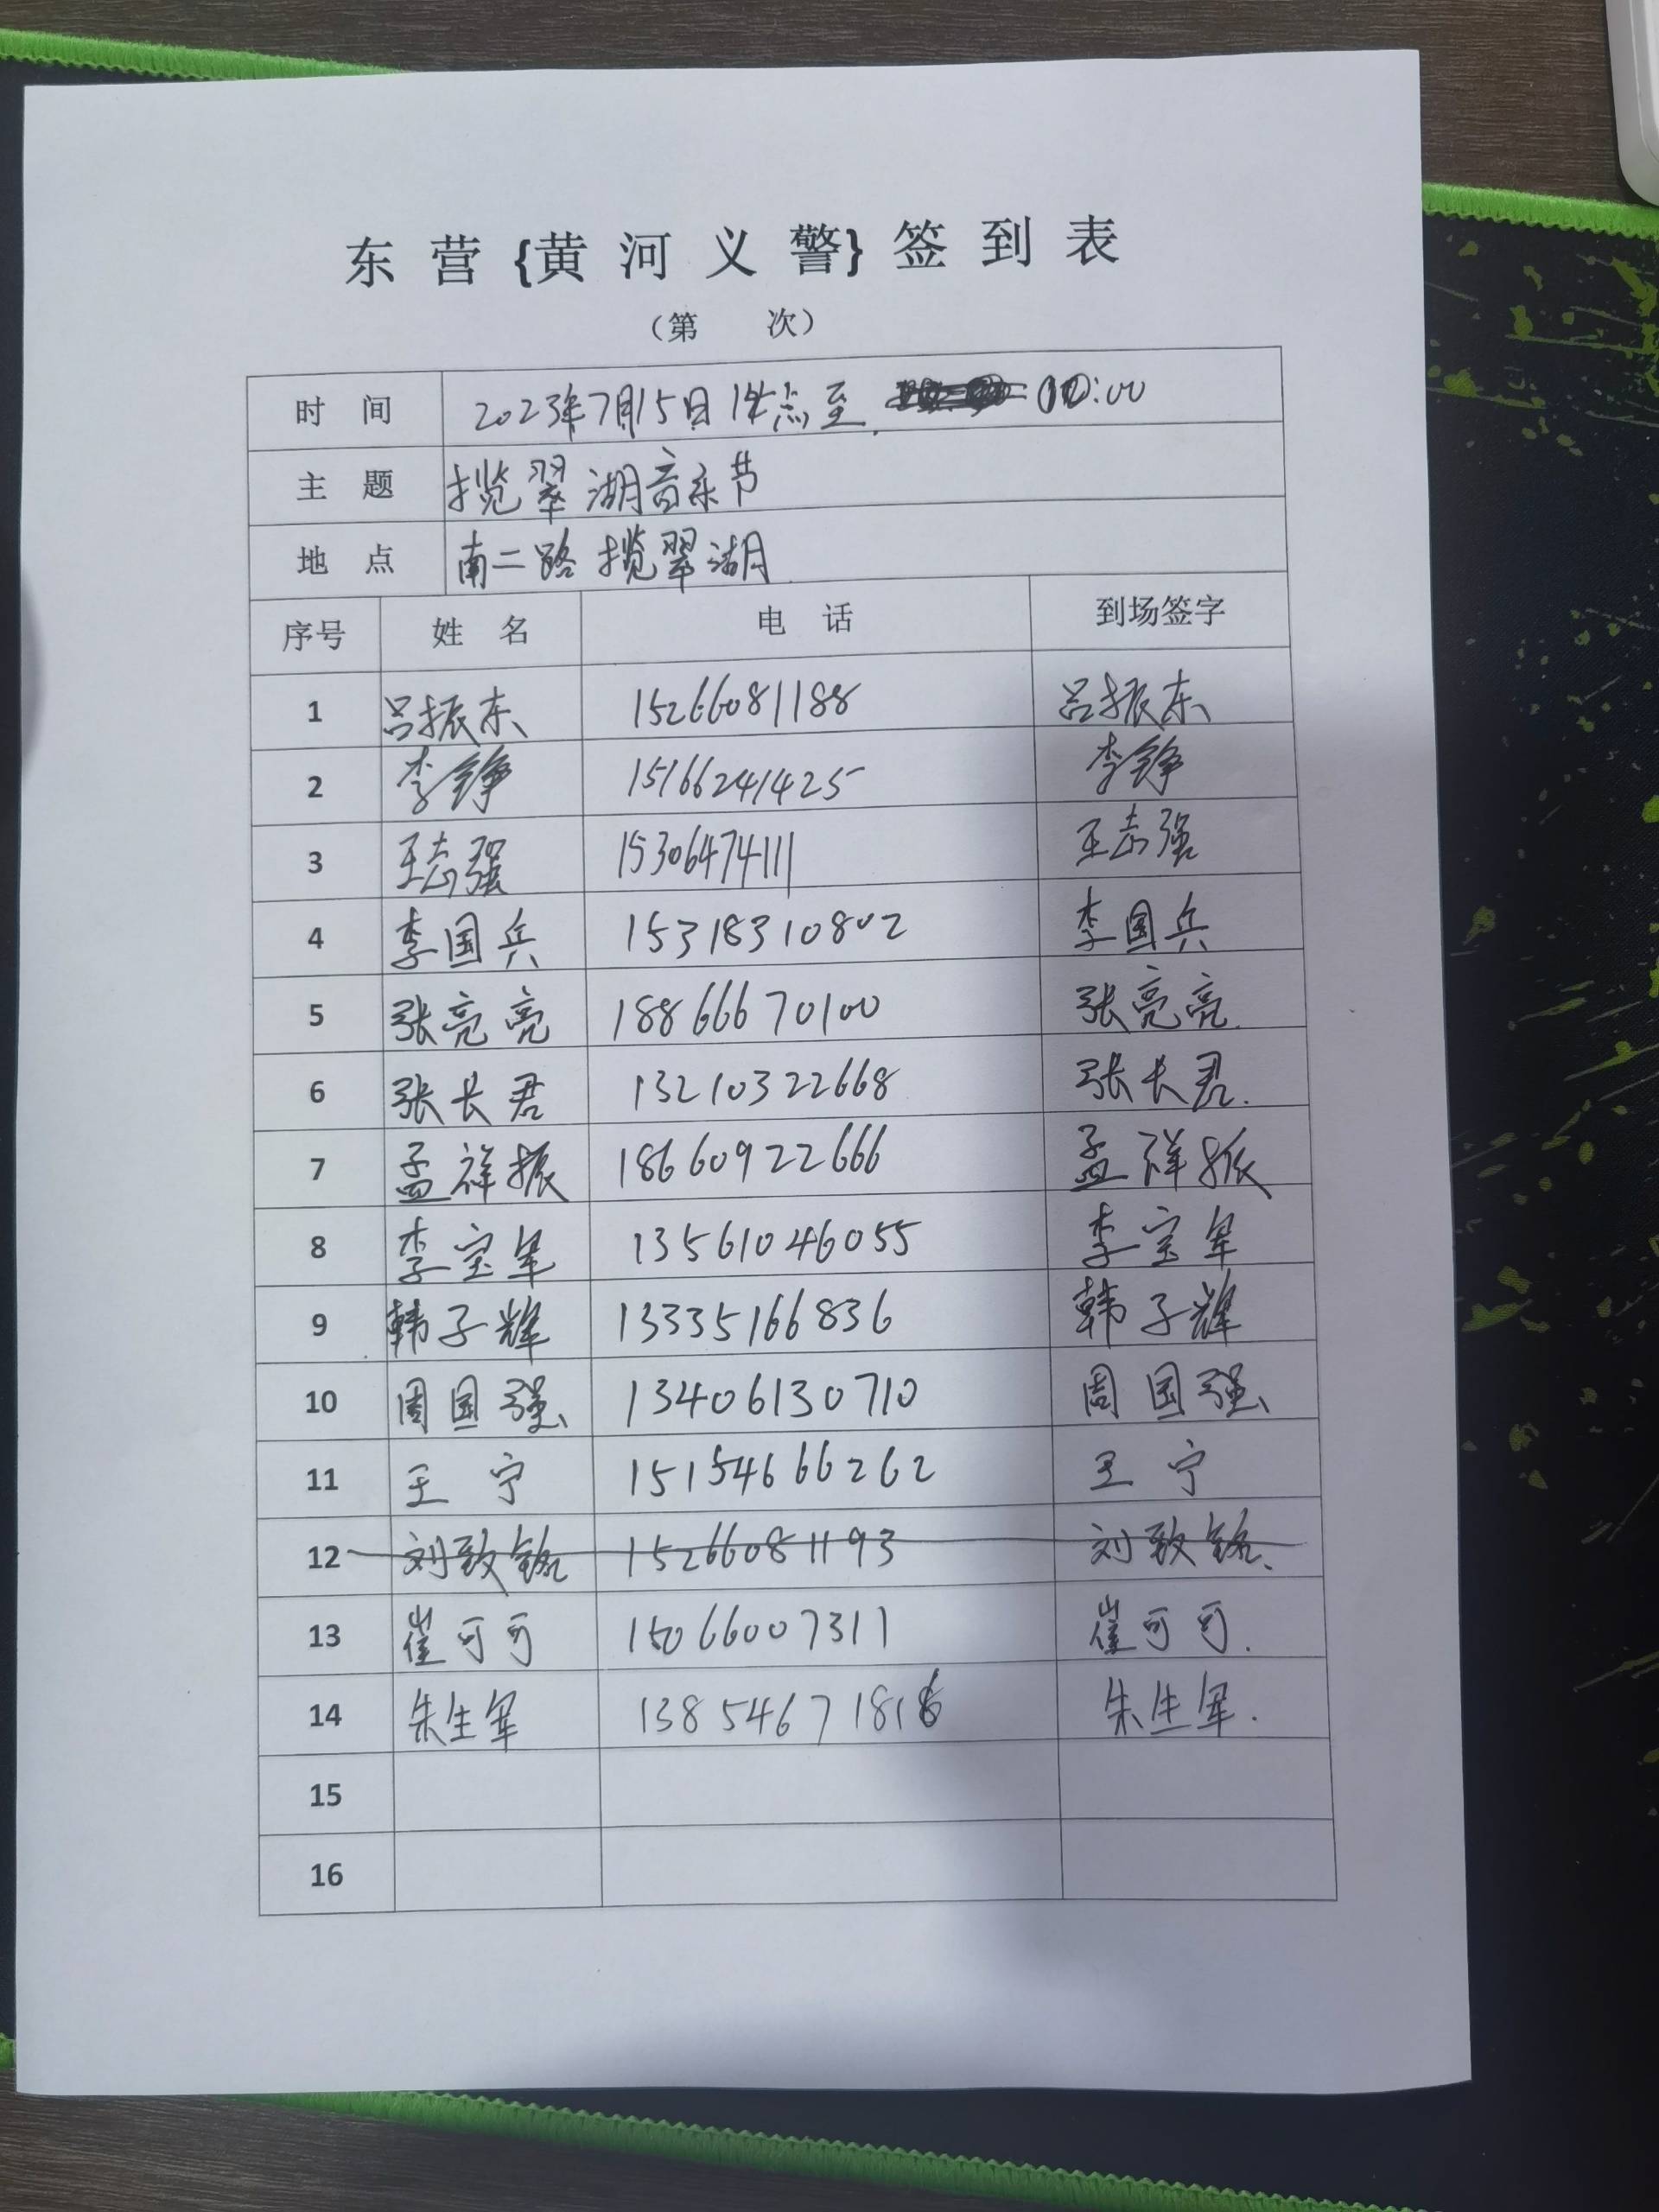 东营{黄河义警}签到表
（第 次）
时间 2023年7月15日14点至 10:00
主题 揽翠湖音乐节
地点 南二路 揽翠湖
序号 姓名 电话 到场签字
1 吕振东 15266081188 吕振东
2 李铮 15166241425 李铮
3 王志强 15306474111 王志强
4 李国兵 15318310802 李国兵
5 张亮亮 18866670100 张亮亮
6 张长君 13210322668 张长君.
7 孟祥振 18660922666 孟祥振
8 李宝军 13561046055 李宝军
9 韩子辉 13335166836 韩子辉
10 周国强 13406130710 周国强
11 王宁 15154666262 王宁
12 刘致铭 15266081193 刘致铭
13 崔可可 15066007311 崔可可.
14 朱生军 13854671816 朱生军.
15
16